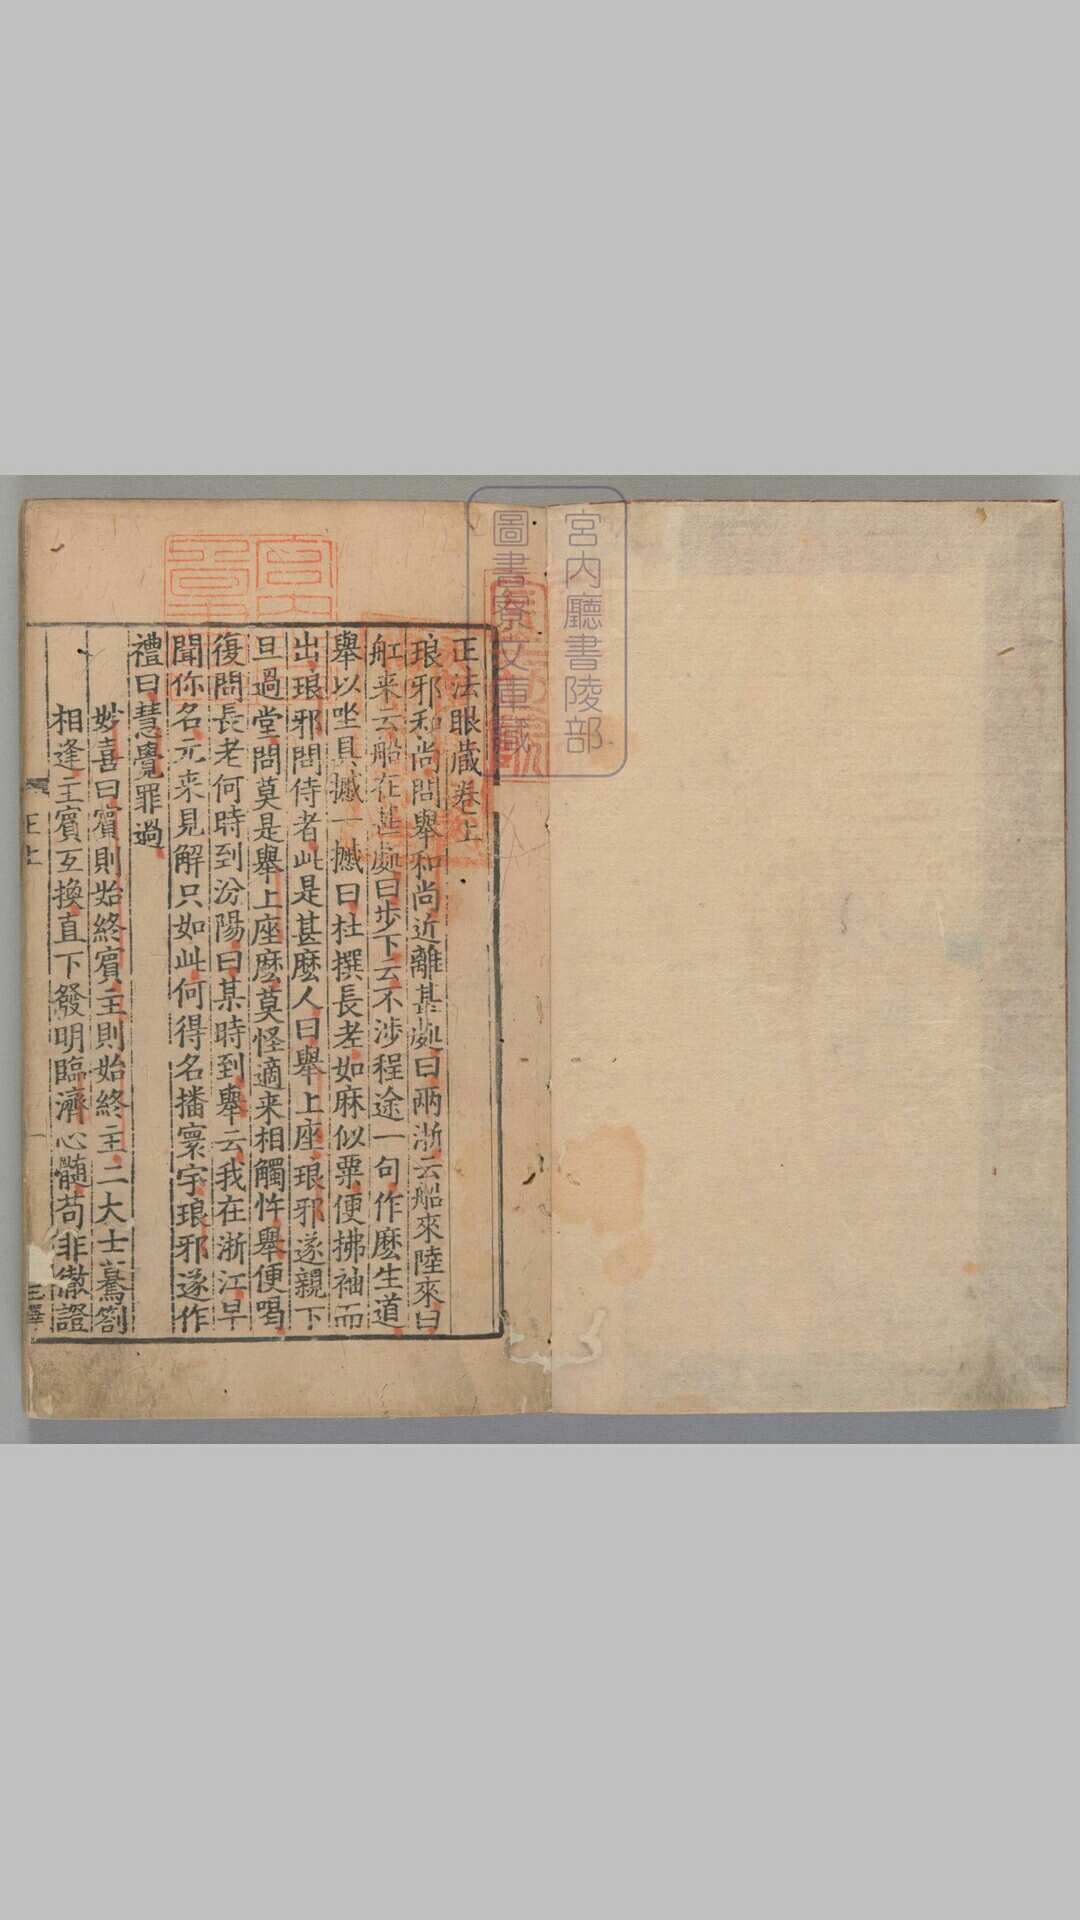 宮内廳書陵部
圖書寮文庫藏
正法眼藏卷上
琅邪和尚問舉和尚近離甚處曰兩浙云船來陸來曰
舡来云船在甚處曰步下云不涉程途一句作麼生道
舉以坐具撼一撼曰杜撰長老如麻似粟便拂袖而
出琅邪問侍者此是甚麼人曰舉上座琅邪遂親下
旦過堂問莫是舉上座麼莫怪適来相觸忤舉便喝
復問長老何時到汾陽曰某時到舉云我在浙江早
聞你名元来見解只如此何得名播寰宇琅邪遂作
禮曰慧覺罪過
妙喜曰賓則始終賓主則始終主二大士驀劄
相逢主賓互換直下發明臨濟心髓苟非徹證